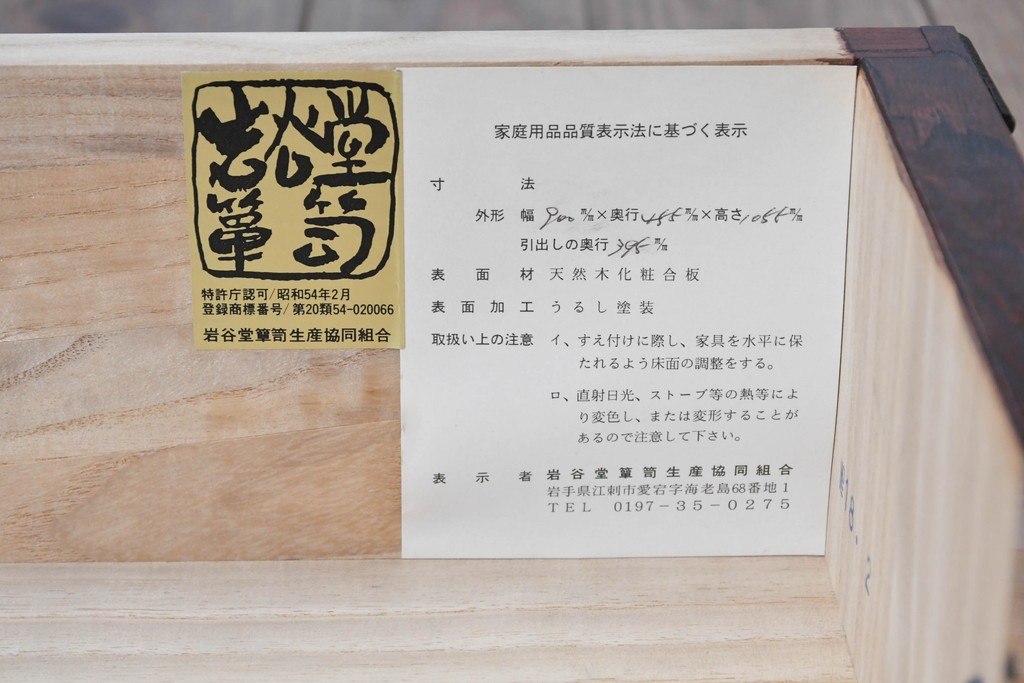 岩谷堂
箪笥
特許庁認可/昭和54年2月
登録商標番号/第20類54-020066
岩谷堂箪笥生産協同組合
家庭用品品質表示法に基づく表示
寸法
外形 幅 900 m/m×奥行 455 m/m×高さ 1055 m/m
引出しの奥行 395 m/m
表面材 天然木化粧合板
表面加工 うるし塗装
取扱い上の注意 イ、すえ付けに際し、家具を水平に保
たれるよう床面の調整をする。
ロ、直射日光、ストーブ等の熱等によ
り変色し、または変形することが
あるので注意して下さい。
表示者 岩谷堂簞笥生産協同組合
岩手県江刺市愛宕字海老島68番地1
TEL 0197-35-0275